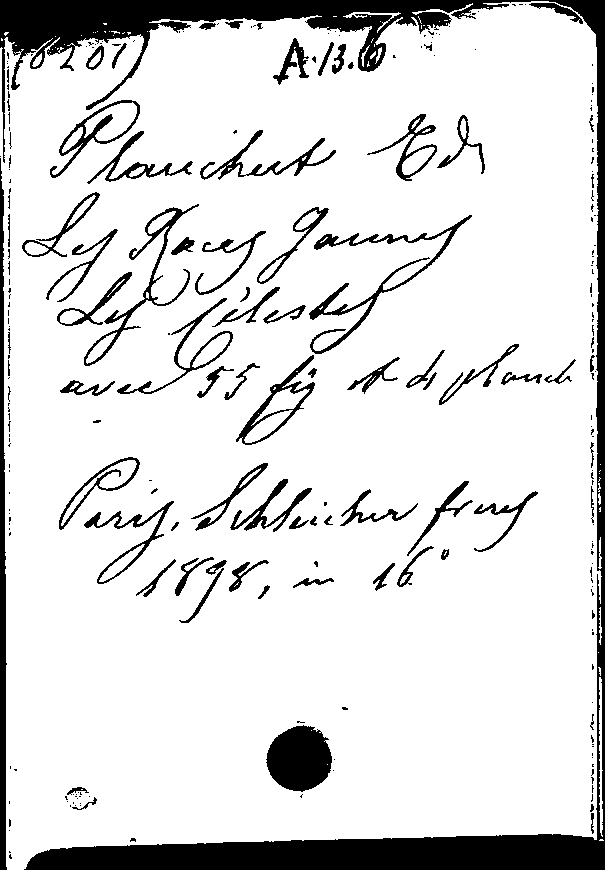 (6201) A.13.6.
Plauchut Ed.
Les Races Jaunes
Les Célestes
avec 55 fig et 4 planch
Paris, Schleicher frères
1898, in 16°